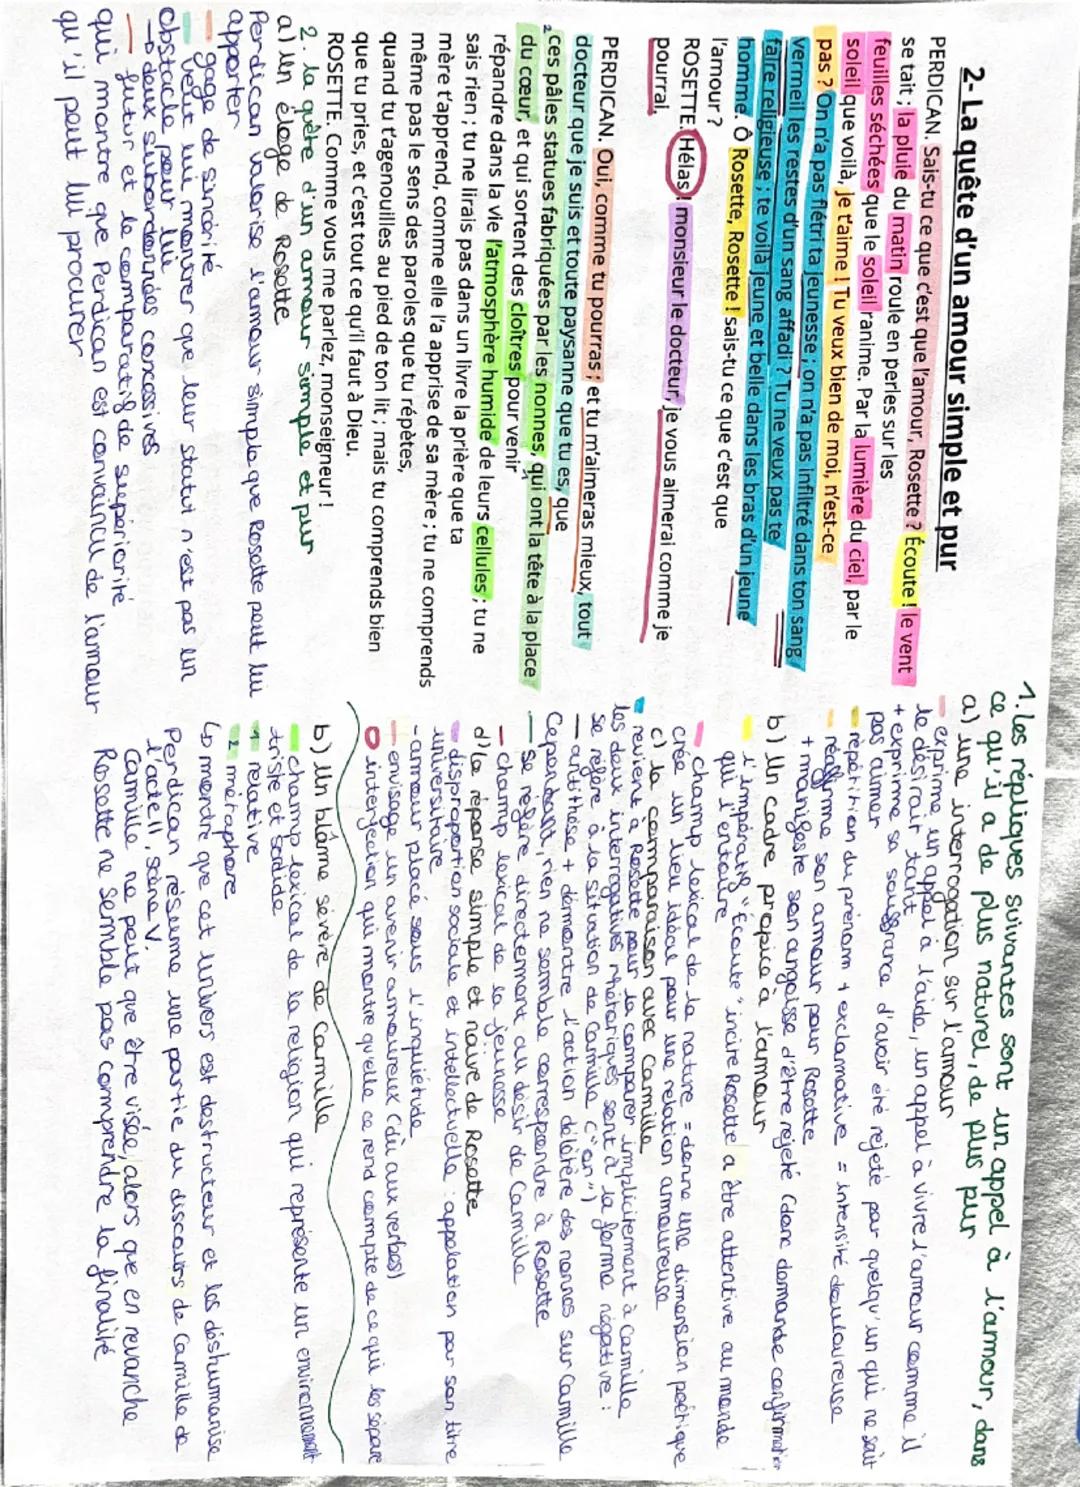 2- La quête d'un amour simple et pur
PERDICAN. Sais-tu ce que c'est que l'amour, Rosette ? Écoute ! le vent
se tait ; la pluie du matin roule en perles sur les
feuilles séchées que le soleil ranime. Par la lumière du ciel, par le
soleil que voilà, je t'aime ! Tu veux bien de moi, n'est-ce
pas ? On n'a pas flétri ta jeunesse ; on n'a pas infiltré dans ton sang
vermeil les restes d'un sang affadi ? Tu ne veux pas te
faire religieuse ; te voilà jeune et belle dans les bras d'un jeune
homme. Ô Rosette, Rosette ! sais-tu ce que c'est que
l'amour ?
ROSETTE. Hélas ! monsieur le docteur, je vous aimerai comme je
pourrai.
PERDICAN. Oui, comme tu pourras ; et tu m'aimeras mieux, tout
docteur que je suis et toute paysanne que tu es, que
2 ces pâles statues fabriquées par les nonnes, qui ont la tête à la place
du cœur, et qui sortent des cloîtres pour venir
répandre dans la vie l'atmosphère humide de leurs cellules ; tu ne
sais rien ; tu ne lirais pas dans un livre la prière que ta
mère t'apprend, comme elle l'a apprise de sa mère ; tu ne comprends
même pas le sens des paroles que tu répètes,
quand tu t'agenouilles au pied de ton lit ; mais tu comprends bien
que tu pries, et c'est tout ce qu'il faut à Dieu.
ROSETTE. Comme vous me parlez, monseigneur !
2. la quête d'un amour simple et pur
a) Un éloge de Rosette
Perdican valorise l'amour simple que Rosette peut lui
apporter
gage de sincérité
veut lui montrer que leur statut n'est pas un
obstacle pour lui
→ deux subordonnées concessives
— futur et le comparatif de supériorité
qui montre que Perdican est convaincu de l'amour
qu'il peut lui procurer
1. les répliques suivantes sont un appel à l'amour, dans
ce qu'il a de plus naturel, de plus pur
a) une interrogation sur l'amour
exprime un appel à l'aide, un appel à vivre l'amour comme il
le désirait tant
+ exprime sa souffrance d'avoir été rejeté par quelqu'un qui ne sait
pas aimer
répétition du prénom + exclamative = intensité douloureuse
réaffirme son amour pour Rosette
+ manifeste son angoisse d'être rejeté (donc demande confirmation
b) Un cadre propice à l'amour
l'impératif "Écoute" incite Rosette à être attentive au monde
qui l'entoure
champ lexical de la nature = donne une dimension poétique
crée un lieu idéal pour une relation amoureuse
c) la comparaison avec Camille
revient à Rosette pour la comparer implicitement à Camille
les deux interrogatives rhétoriques sont à la forme négative :
se réfère à la situation de Camille ("on")
— antithèse + démontre l'action délétère des nonnes sur Camille
Cependant, rien ne semble correspondre à Rosette
— se réfère directement au désir de Camille
— champ lexical de la jeunesse
d) la réponse simple et naïve de Rosette
disproportion sociale et intellectuelle : appelation par son titre
universitaire
- amour placé sous l'inquiétude
- envisage un avenir amoureux (dû aux verbes)
interjection qui montre qu'elle ce rend compte de ce qui les sépare
b) Un blâme sévère de Camille
champ lexical de la religion qui représente un environnement
triste et sordide
1 relative
2 métaphore
↳ montre que cet univers est destructeur et les déshumanise
Perdican résume une partie du discours de Camille de
l'acte II, scène V.
Camille ne peut que être visée, alors que en revanche
Rosette ne semble pas comprendre la finalité